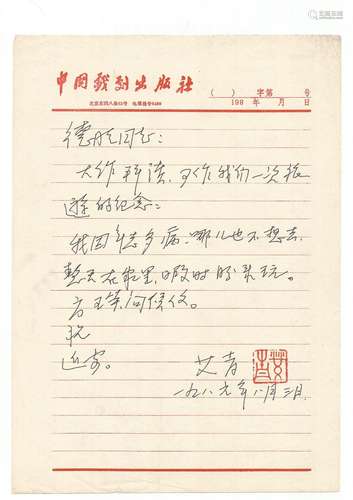 中国戏剧出版社
北京东四八条52号 电报挂号
（ ） 字第 号
198 年 月 日
德 同志：
大作拜读，可作我们一次旅
游的纪念。
我因年老多病，哪儿也不想去，
整天在家里，暇时 玩。
问候你。
祝
近安。
艾青
一九八九年八月三日